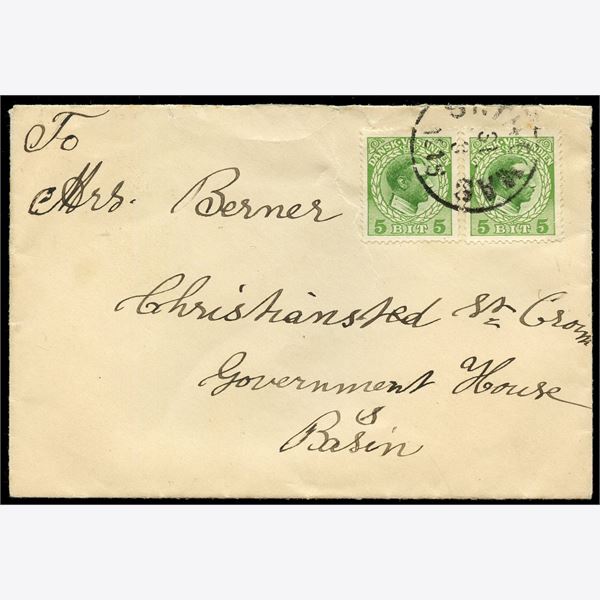 To
Mrs. Berner
Christiansted St. Croix
Government House
Basin
DANSK VESTINDIEN DANSK VESTINDIEN
5 BIT 5 5 BIT 5